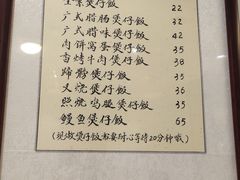 全素煲仔饭 22
广式腊肠煲仔饭 32
广式腊味煲仔饭 42
肉饼窝蛋煲仔饭 35
香烤牛肉煲仔饭 38
蹄髈煲仔饭 35
叉烧煲仔饭 36
照烧鸡腿煲仔饭 35
鳗鱼煲仔饭 65
(现做煲仔饭 需要耐心等待20分钟哦)